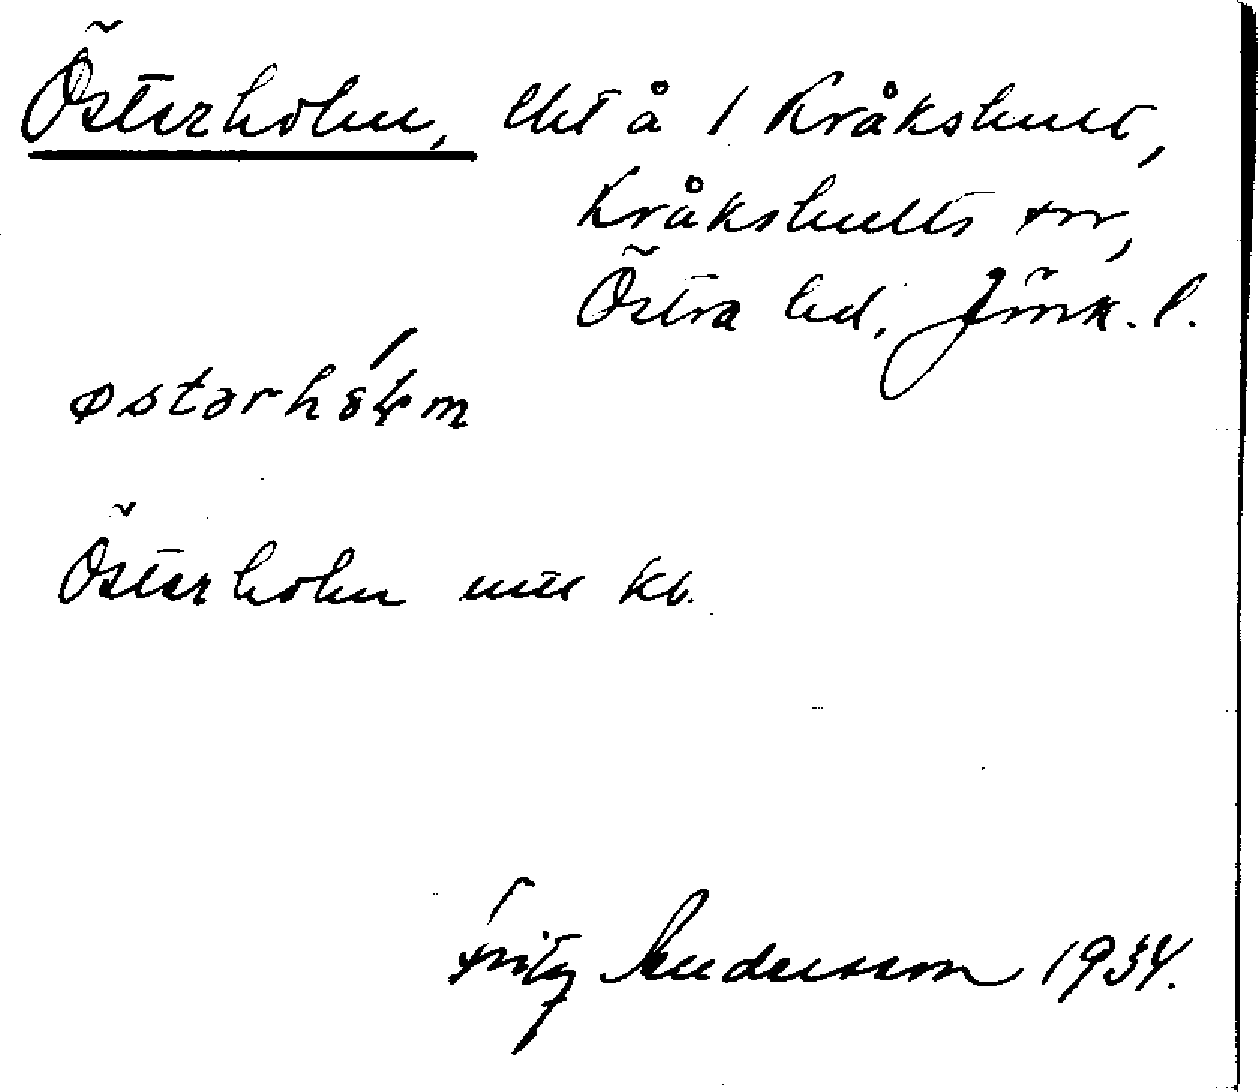 Österholm, lht å 1 Kråkshult,
Kråkshults sn,
Östra hd, Jönk. l.
østərhɵlm
Österholm utt kb.
Fritz Andersson 1934.